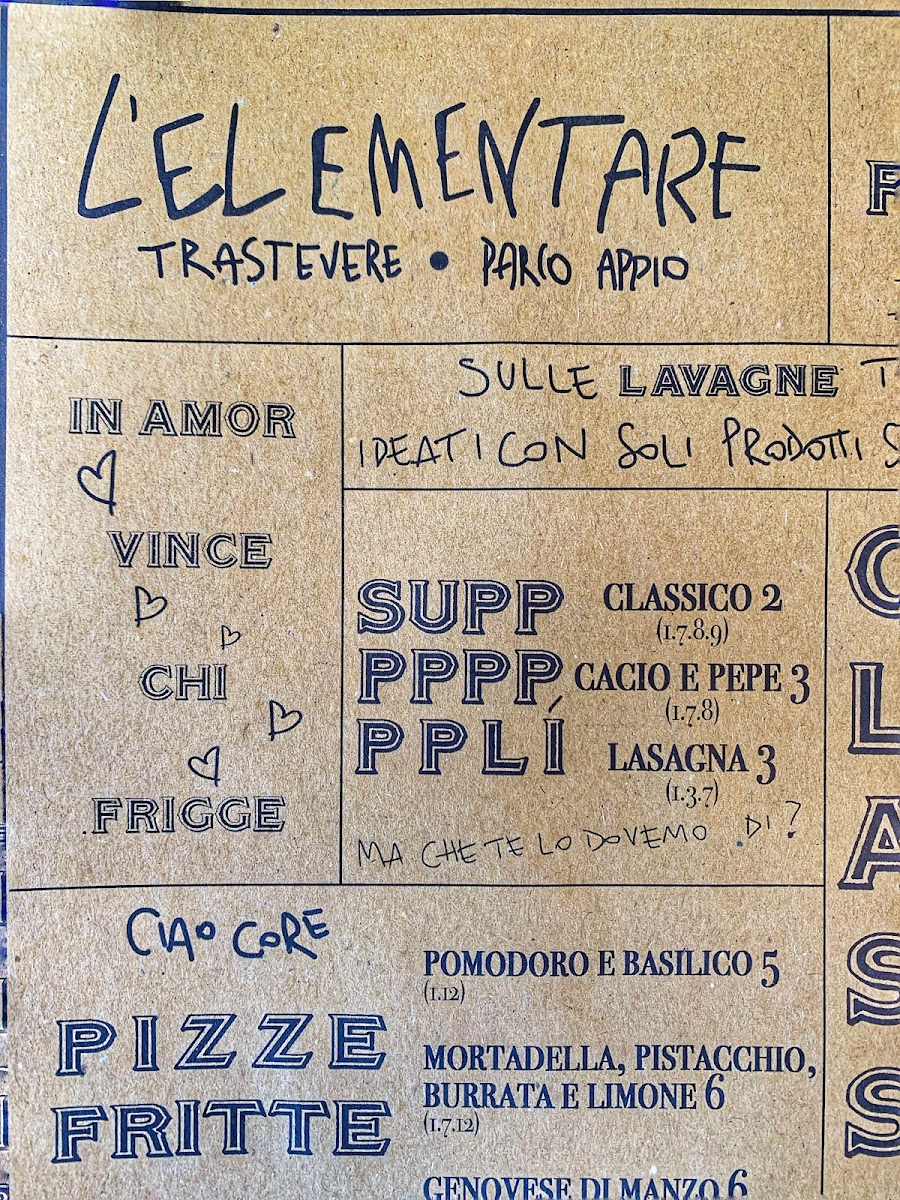 L'ELEMENTARE
TRASTEVERE • PARCO APPIO
IN AMOR
VINCE
CHI
FRIGGE
SULLE LAVAGNE
IDEATI CON SOLI PRODOTTI
SUPP
PPPP
PPLÍ
CLASSICO 2
(1.7.8.9)
CACIO E PEPE 3
(1.7.8)
LASAGNA 3
(1.3.7)
MA CHE TE LO DOVEMO DI?
CIAO CORE
PIZZE
FRITTE
POMODORO E BASILICO 5
(1.12)
MORTADELLA, PISTACCHIO,
BURRATA E LIMONE 6
(1.7.12)
GENOVESE DI MANZO 6
C
L
A
S
S